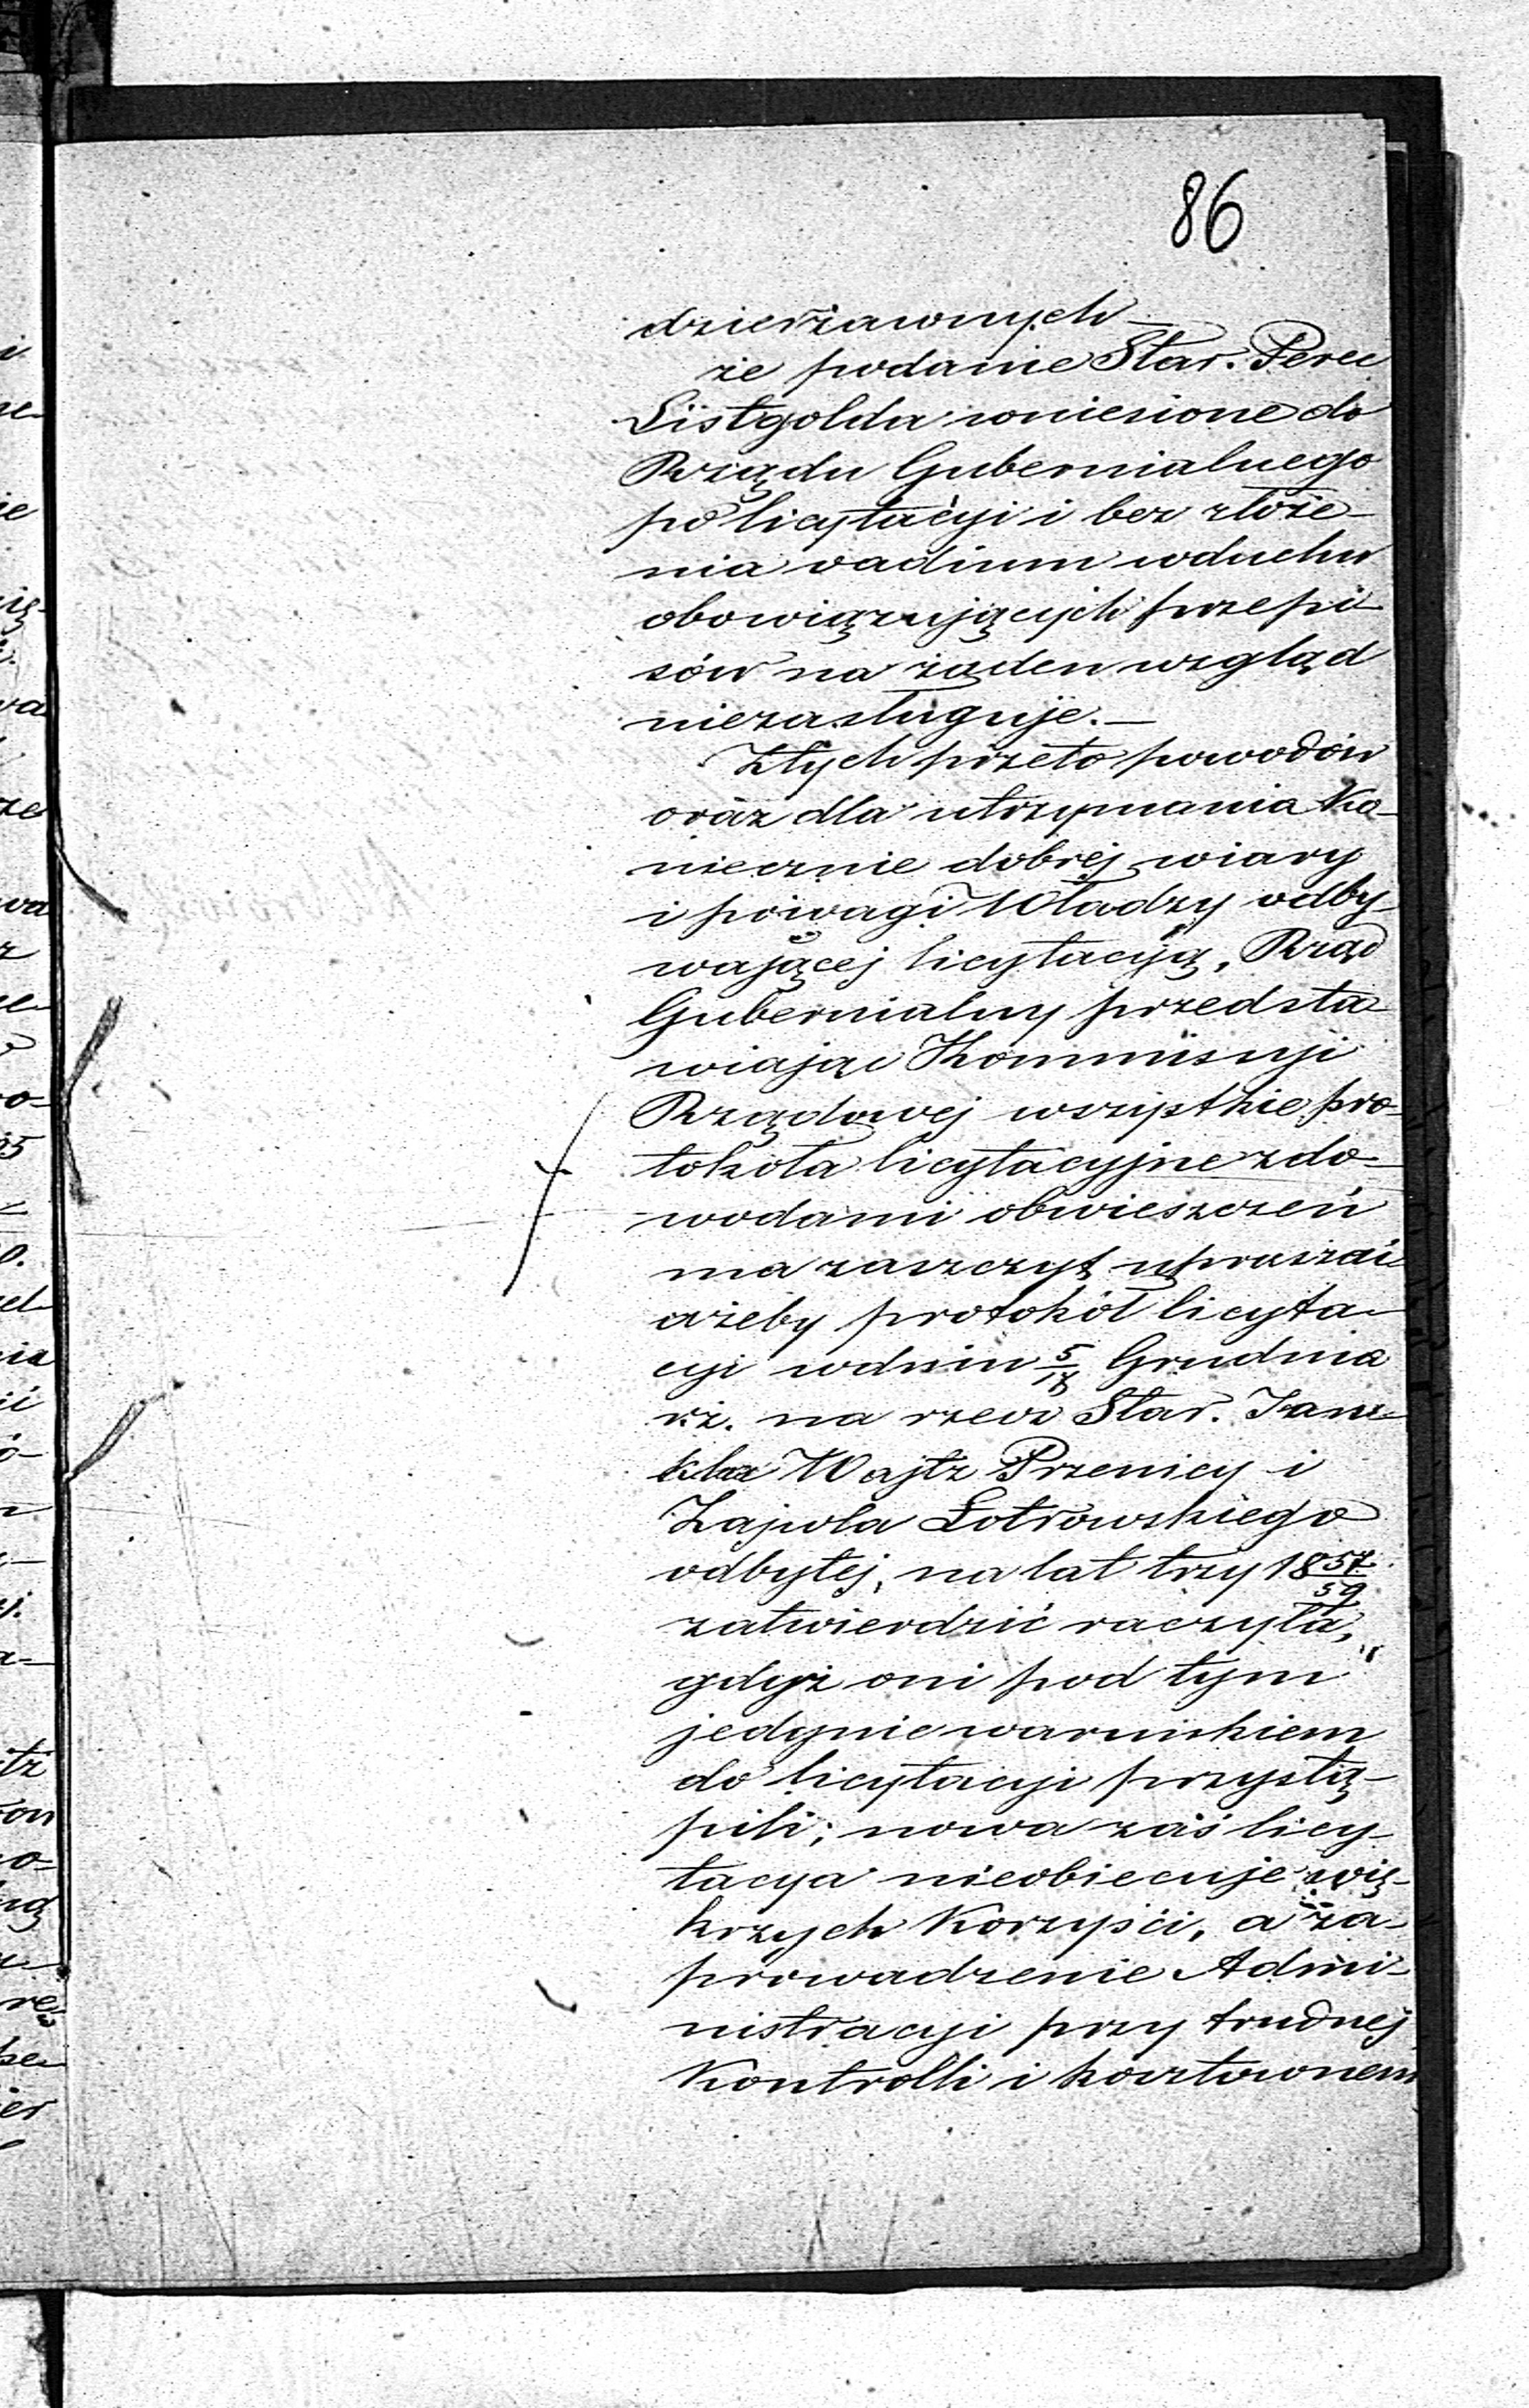 86
dzierżawnych
że podanie Star. Perec
Listgolda wniesione do
Rządu Gubernialnego
po licytacyi i bez złoże-
nia vadium wduchu
obowiązujących przepi-
sów na żaden wzgląd
niezasługuje.—
Ztych przeto powodów
oraz dla utrzymania Ko-
niecznie dobrej wiary
i powagi Władzy odby-
wającej licytacyą, Rząd
Gubernialny przedsta-
wiając Kommissyi
Rządowej wszystkie pro-
tokoła licytacyjne zdo-
wodami obwieszczeń
ma zaszczyt upraszać
ażeby protokół licyta-
cyi wdniu 5/17 Grudnia
rż. na rzecz Star. Jan-
kla Wajtz Przenicy i
Zajwla Lotrowskiego
odbytej, na lat trzy 18 57/59
zatwierdzić raczyła,
gdyż oni pod tym
jedynie warunkiem
do licytacyi przystą-
pili; nowa zaś licy-
tacya nieobiecuje wię-
kszych Korzyści, a za-
prowadzenie Admi-
nistracyi przy trudnej
Kontrolli i kosztownem